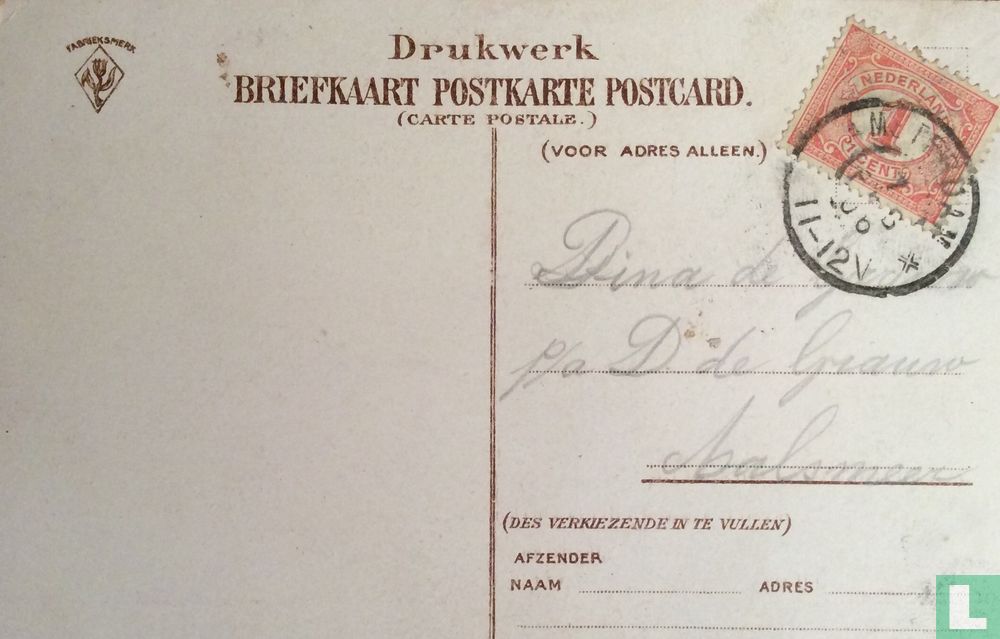 FABRIEKSMERK
Drukwerk
BRIEFKAART POSTKARTE POSTCARD.
(CARTE POSTALE.)
(VOOR ADRES ALLEEN.)
NEDERLAND
1
CENT
AMSTERDAM
11-12V
Dina de
p/a D de Graauw
Aalsmeer
(DES VERKIEZENDE IN TE VULLEN)
AFZENDER
NAAM ADRES
L